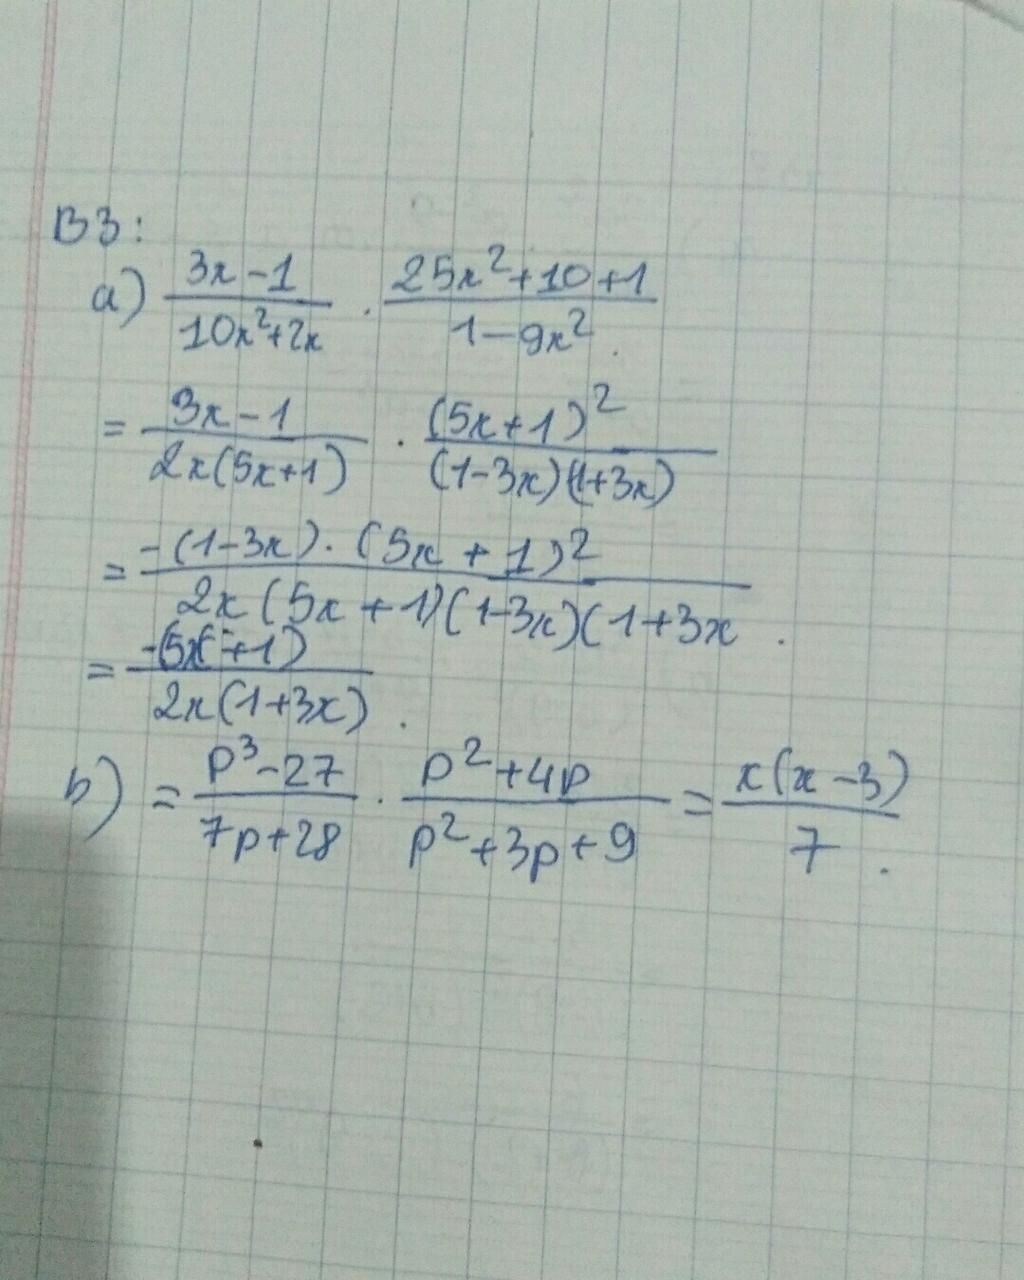 B3:
a) \frac{3x-1}{10x^2+2x} . \frac{25x^2+10+1}{1-9x^2}.
= \frac{3x-1}{2x(5x+1)} . \frac{(5x+1)^2}{(1-3x)(1+3x)}
= \frac{-(1-3x).(5x+1)^2}{2x(5x+1)(1-3x)(1+3x}.
= \frac{-(5x+1)}{2x(1+3x)}.
b) = \frac{p^3-27}{7p+28} . \frac{p^2+4p}{p^2+3p+9} = \frac{x(x-3)}{7}.